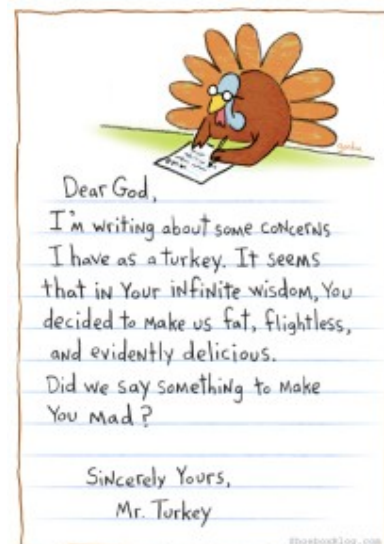 Dear God,
I'm writing about some concerns
I have as a turkey. It seems
that in Your infinite wisdom, You
decided to make us fat, flightless,
and evidently delicious.
Did we say something to make
You mad?
Sincerely Yours,
Mr. Turkey
ShoeboxBlog.com